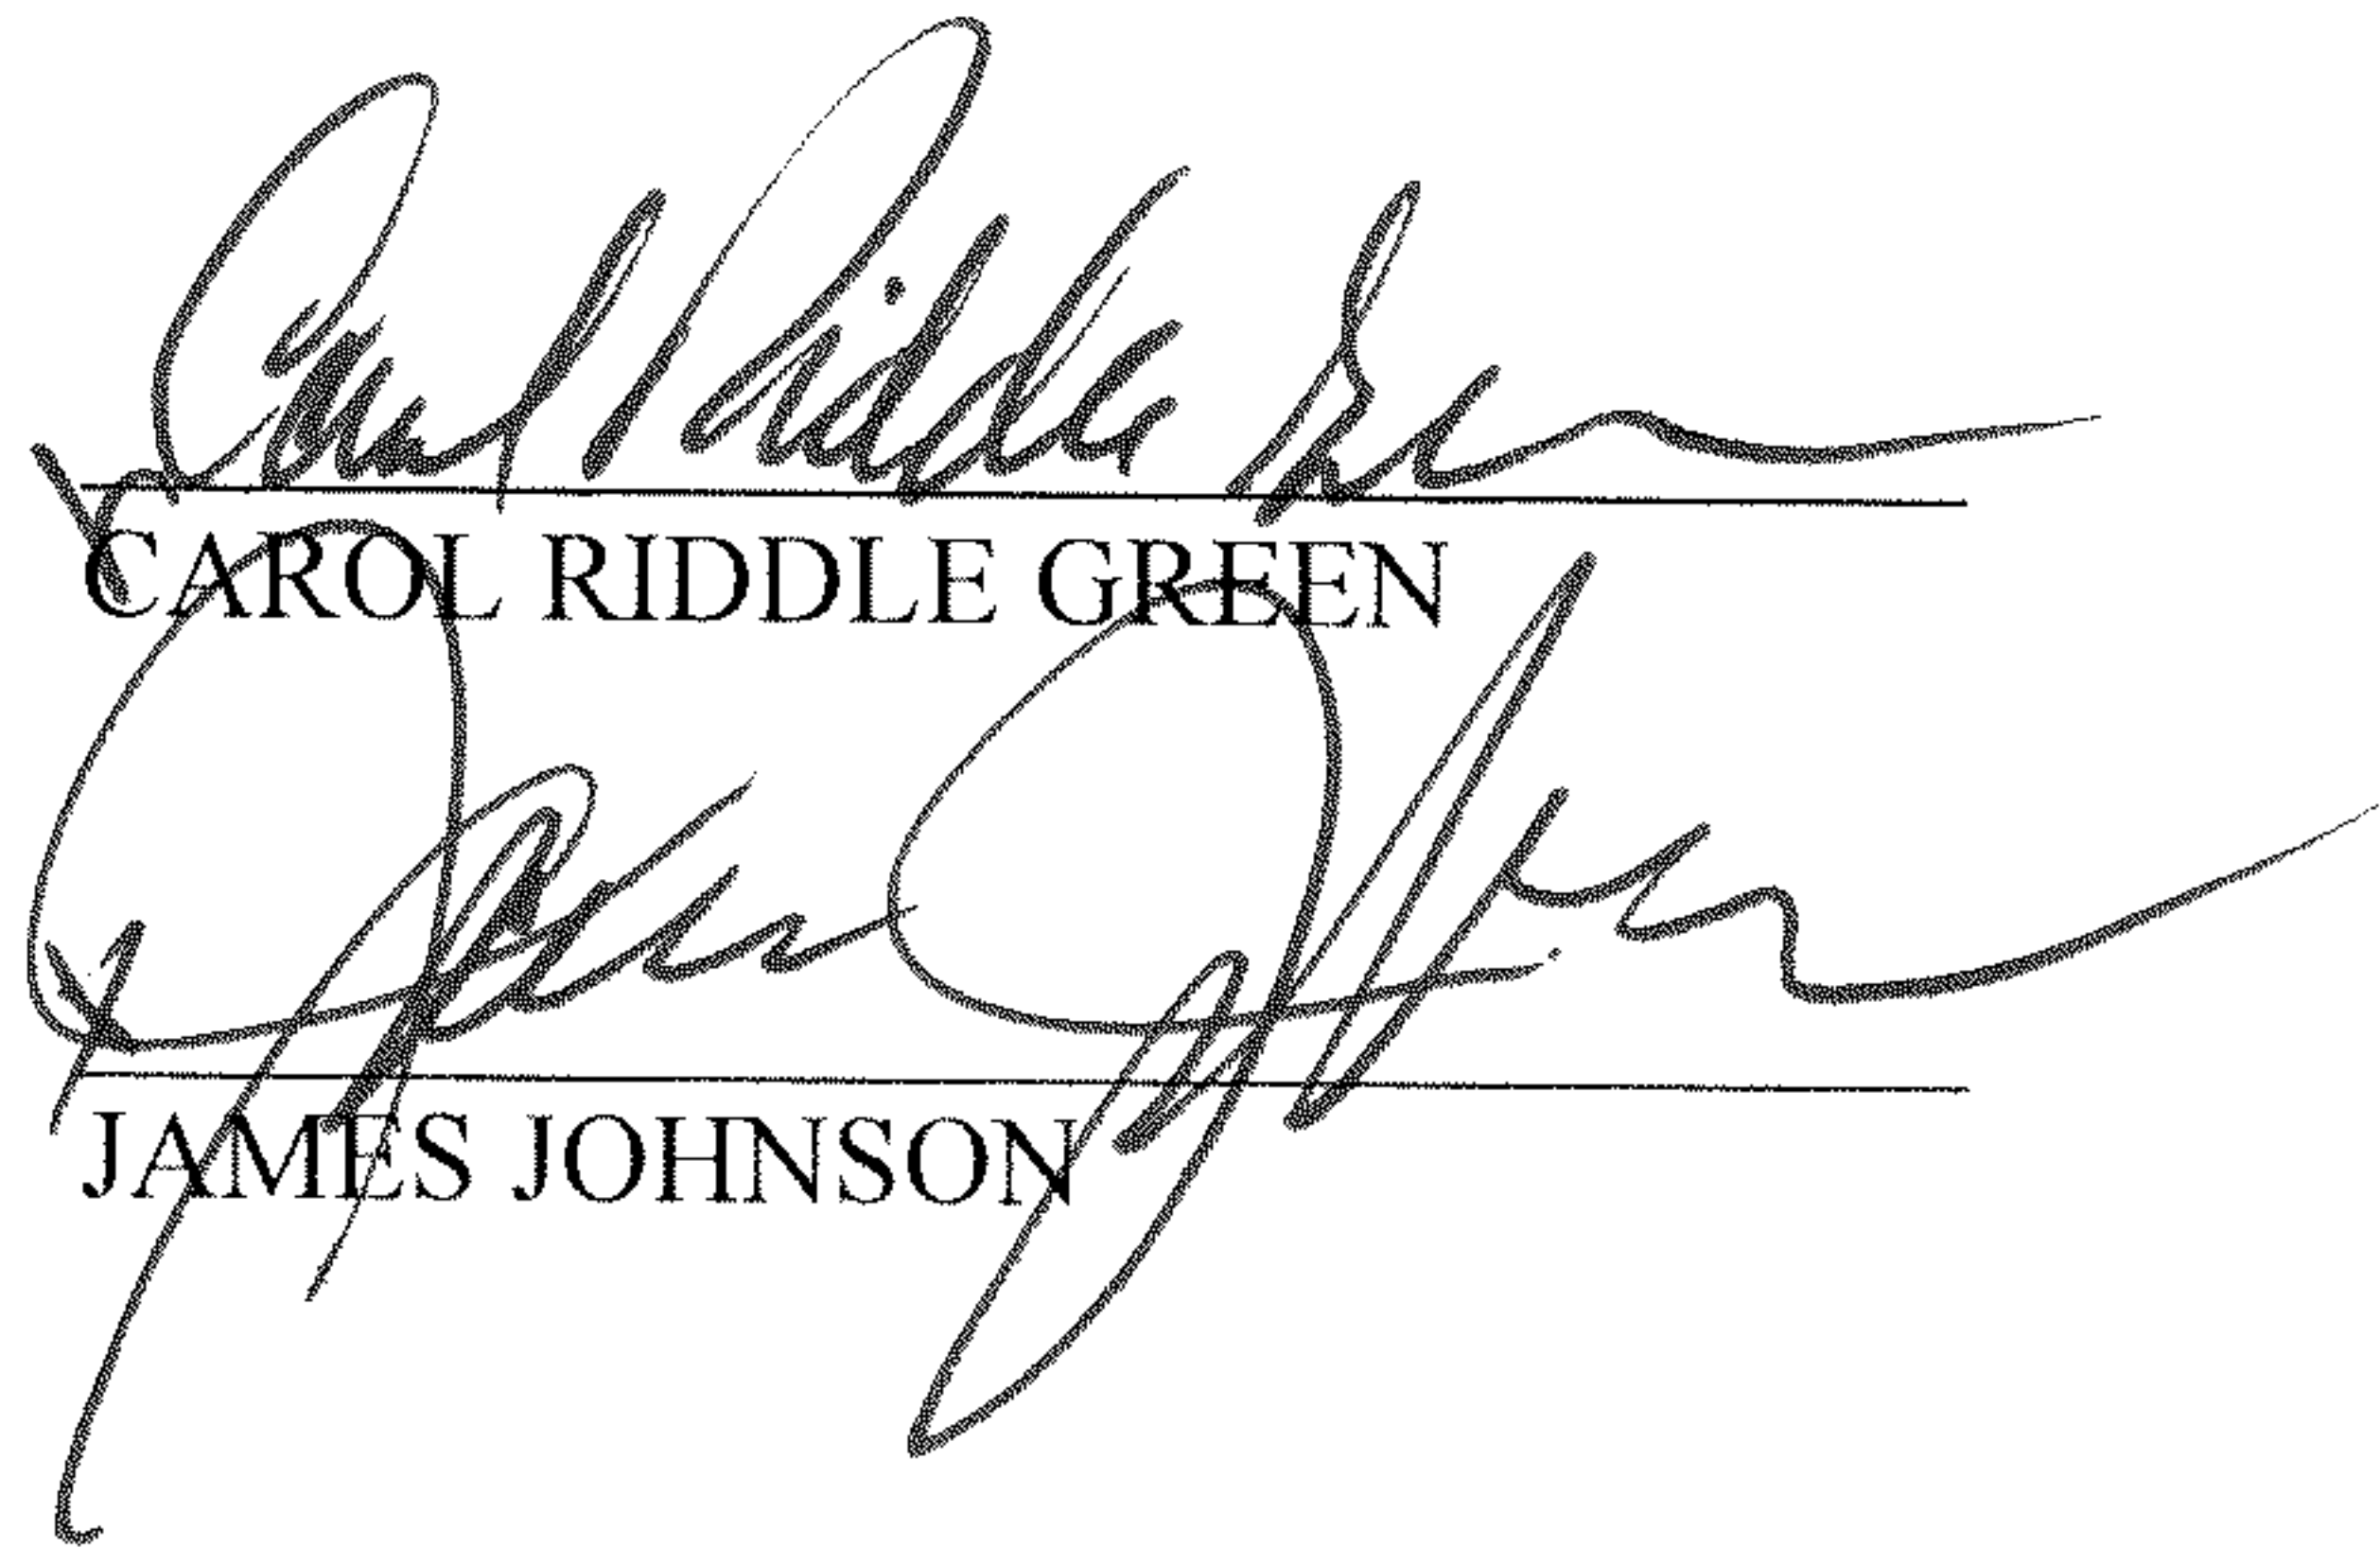 Carol Riddle Green
CAROL RIDDLE GREEN
James Johnson
JAMES JOHNSON